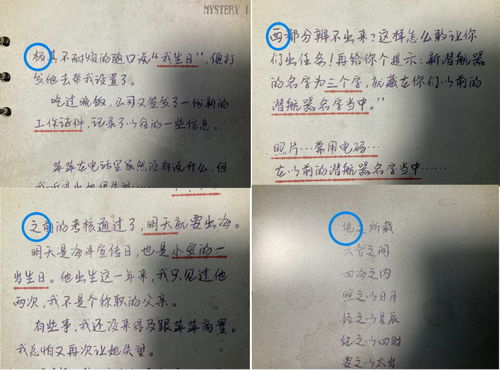 MYSTERY I
极其不耐烦的随口说“我生日”,便打
发他去帮我设置了。
吃过晚饭,公司又签发了一份新的
工作证件,记录了以前的一些信息。
萍萍在电话里虽然没有说什么,但
西都分辨不出来?这样怎么敢让你
们出任务!再给你个提示:新潜航器
的名字为三个字,就藏在你们以前的
潜航器名字当中。”
照片…常用电码…
在以前的潜航器名字当中……
之前的考核通过了,明天就要出海。
明天是海洋宣传日,也是小安的一
岁生日。他出生这一年来,我只见过他
两次,我不是个称职的父亲。
有些事,我还没来得及跟萍萍商量。
我总怕又再次让她失望。
地之所载
六合之间
四海之内
照之以日月
经之以星辰
纪之以四时
要之以太岁